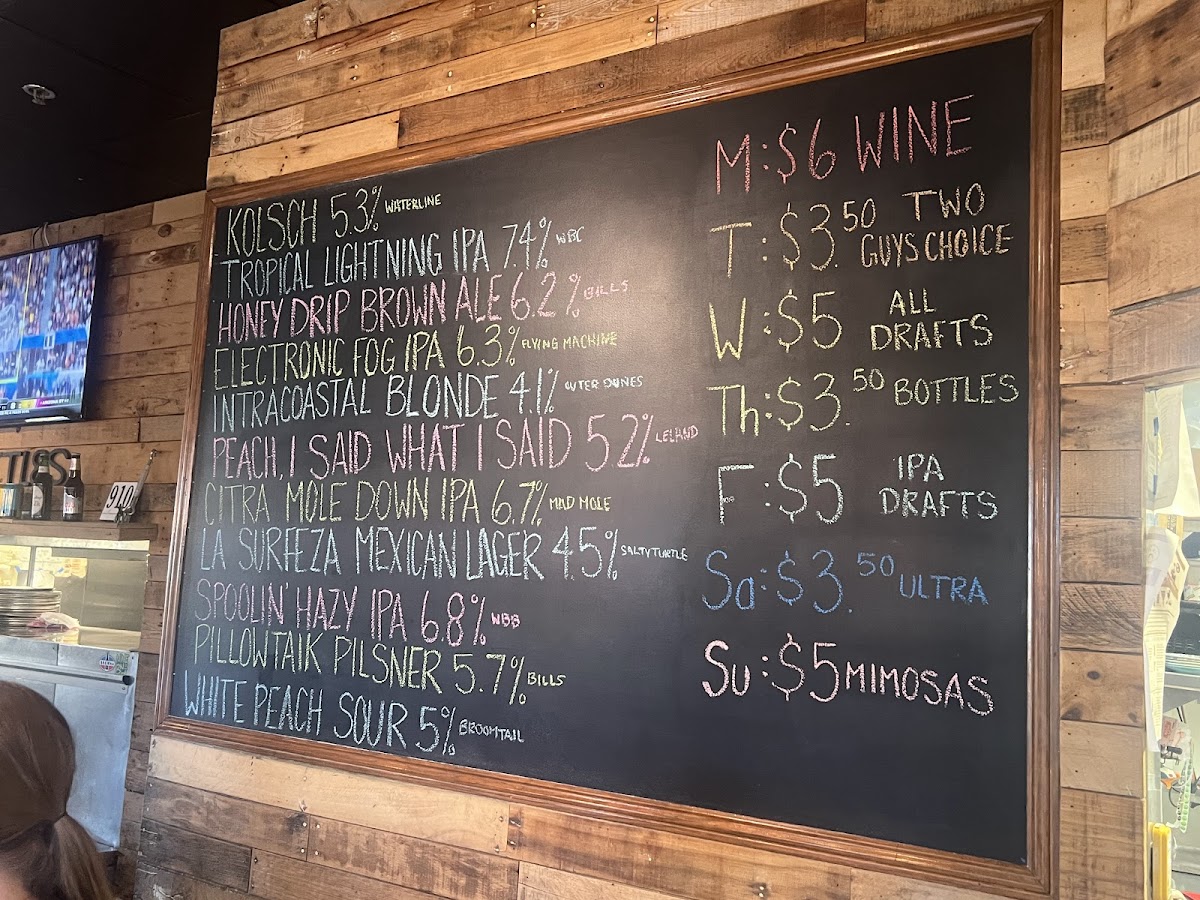 KOLSCH 5.3% WATERLINE
TROPICAL LIGHTNING IPA 7.4% WBC
HONEY DRIP BROWN ALE 6.2% BILLS
ELECTRONIC FOG IPA 6.3% FLYING MACHINE
INTRACOASTAL BLONDE 4.1% OUTER DUNES
PEACH, I SAID WHAT I SAID 5.2% LELAND
CITRA MOLE DOWN IPA 6.7% MAD MOLE
LA SURFEZA MEXICAN LAGER 4.5% SALTY TURTLE
SPOOLIN' HAZY IPA 6.8% WBB
PILLOWTALK PILSNER 5.7% BILLS
WHITE PEACH SOUR 5% BROOMTAIL
M: $6 WINE
T: $3.50 TWO
GUYS CHOICE
W: $5 ALL
DRAFTS
Th: $3.50 BOTTLES
F: $5 IPA
DRAFTS
Sa: $3.50 ULTRA
Su: $5 MIMOSAS
910